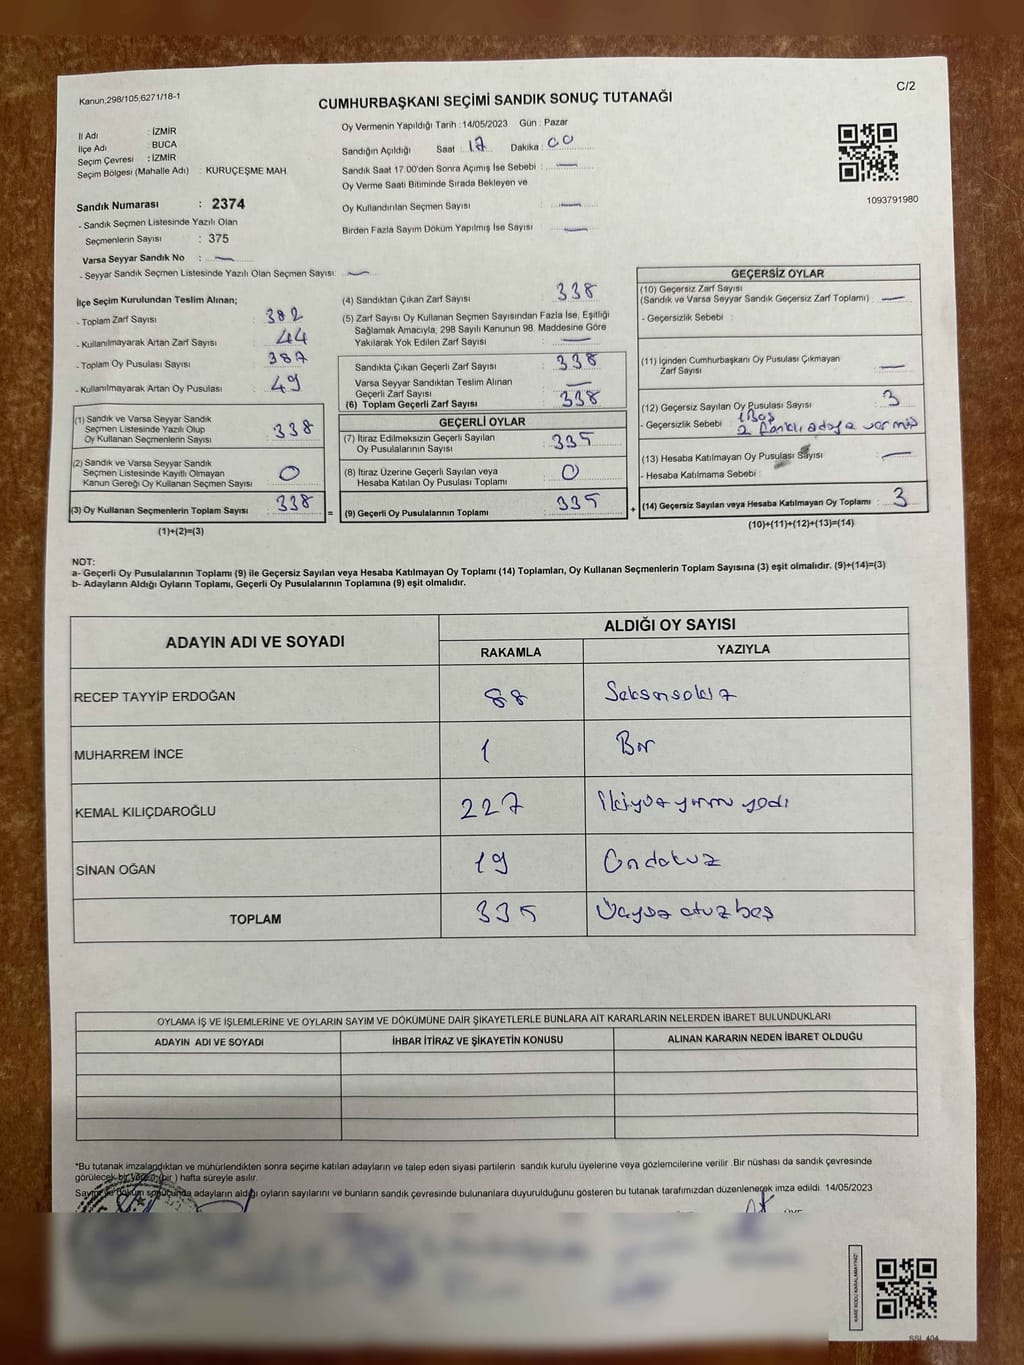 Kanun,298/105,6271/18-1
C/2
CUMHURBAŞKANI SEÇİMİ SANDIK SONUÇ TUTANAĞI
İl Adı : İZMİR
İlçe Adı : BUCA
Seçim Çevresi : İZMİR
Seçim Bölgesi (Mahalle Adı) : KURUÇEŞME MAH.
Sandık Numarası : 2374
- Sandık Seçmen Listesinde Yazılı Olan
Seçmenlerin Sayısı : 375
Varsa Seyyar Sandık No : —
- Seyyar Sandık Seçmen Listesinde Yazılı Olan Seçmen Sayısı: —
Oy Vermenin Yapıldığı Tarih : 14/05/2023 Gün : Pazar
Sandığın Açıldığı Saat : 17 Dakika : 00
Sandık Saat 17.00'den Sonra Açımış İse Sebebi : —
Oy Verme Saati Bitiminde Sırada Bekleyen ve
Oy Kullandırılan Seçmen Sayısı : —
Birden Fazla Sayım Döküm Yapılmış İse Sayısı : —
1093791980
İlçe Seçim Kurulundan Teslim Alınan;
- Toplam Zarf Sayısı : 382
- Kullanılmayarak Artan Zarf Sayısı : 44
- Toplam Oy Pusulası Sayısı : 387
- Kullanılmayarak Artan Oy Pusulası : 49
(1) Sandık ve Varsa Seyyar Sandık
Seçmen Listesinde Yazılı Olup
Oy Kullanan Seçmenlerin Sayısı : 338
(2) Sandık ve Varsa Seyyar Sandık
Seçmen Listesinde Kayıtlı Olmayan
Kanun Gereği Oy Kullanan Seçmen Sayısı : 0
(3) Oy Kullanan Seçmenlerin Toplam Sayısı : 338
(1)+(2)=(3)
(4) Sandıktan Çıkan Zarf Sayısı : 338
(5) Zarf Sayısı Oy Kullanan Seçmen Sayısından Fazla İse, Eşitliği
Sağlamak Amacıyla, 298 Sayılı Kanunun 98. Maddesine Göre
Yakılarak Yok Edilen Zarf Sayısı : —
Sandıkta Çıkan Geçerli Zarf Sayısı : 338
Varsa Seyyar Sandıktan Teslim Alınan
Geçerli Zarf Sayısı : —
(6) Toplam Geçerli Zarf Sayısı : 338
GEÇERLİ OYLAR
(7) İtiraz Edilmeksizin Geçerli Sayılan
Oy Pusulalarının Sayısı : 335
(8) İtiraz Üzerine Geçerli Sayılan veya
Hesaba Katılan Oy Pusulası Toplamı : 0
= (9) Geçerli Oy Pusulalarının Toplamı : 335
GEÇERSİZ OYLAR
(10) Geçersiz Zarf Sayısı
(Sandık ve Varsa Seyyar Sandık Geçersiz Zarf Toplamı) : —
- Geçersizlik Sebebi :
(11) İçinden Cumhurbaşkanı Oy Pusulası Çıkmayan
Zarf Sayısı : —
(12) Geçersiz Sayılan Oy Pusulası Sayısı : 3
1 Boş
- Geçersizlik Sebebi : 2 farklı adaya vermiş
(13) Hesaba Katılmayan Oy Pusulası Sayısı : —
- Hesaba Katılmama Sebebi :
+ (14) Geçersiz Sayılan veya Hesaba Katılmayan Oy Toplamı : 3
(10)+(11)+(12)+(13)=(14)
NOT:
a- Geçerli Oy Pusulalarının Toplamı (9) ile Geçersiz Sayılan veya Hesaba Katılmayan Oy Toplamı (14) Toplamları, Oy Kullanan Seçmenlerin Toplam Sayısına (3) eşit olmalıdır. (9)+(14)=(3)
b- Adayların Aldığı Oyların Toplamı, Geçerli Oy Pusulalarının Toplamına (9) eşit olmalıdır.
ADAYIN ADI VE SOYADI ALDIĞI OY SAYISI
RAKAMLA YAZIYLA
RECEP TAYYİP ERDOĞAN 88 Seksensekiz
MUHARREM İNCE 1 Bir
KEMAL KILIÇDAROĞLU 227 İkiyüz yirmi yedi
SİNAN OĞAN 19 Ondokuz
TOPLAM 335 Üçyüz otuz beş
OYLAMA İŞ VE İŞLEMLERİNE VE OYLARIN SAYIM VE DÖKÜMÜNE DAİR ŞİKAYETLERLE BUNLARA AİT KARARLARIN NELERDEN İBARET BULUNDUKLARI
ADAYIN ADI VE SOYADI İHBAR İTİRAZ VE ŞİKAYETİN KONUSU ALINAN KARARIN NEDEN İBARET OLDUĞU
*Bu tutanak imzalandıktan ve mühürlendikten sonra seçime katılan adayların ve talep eden siyasi partilerin sandık kurulu üyelerine veya gözlemcilerine verilir .Bir nüshası da sandık çevresinde
görülecek bir yere (bir ) hafta süreyle asılır.
Sayım ve döküm sonucunda adayların aldığı oyların sayılarını ve bunların sandık çevresinde bulunanlara duyurulduğunu gösteren bu tutanak tarafımızdan düzenlenerek imza edildi. 14/05/2023
KARE KODU KARALAMAYINIZ!